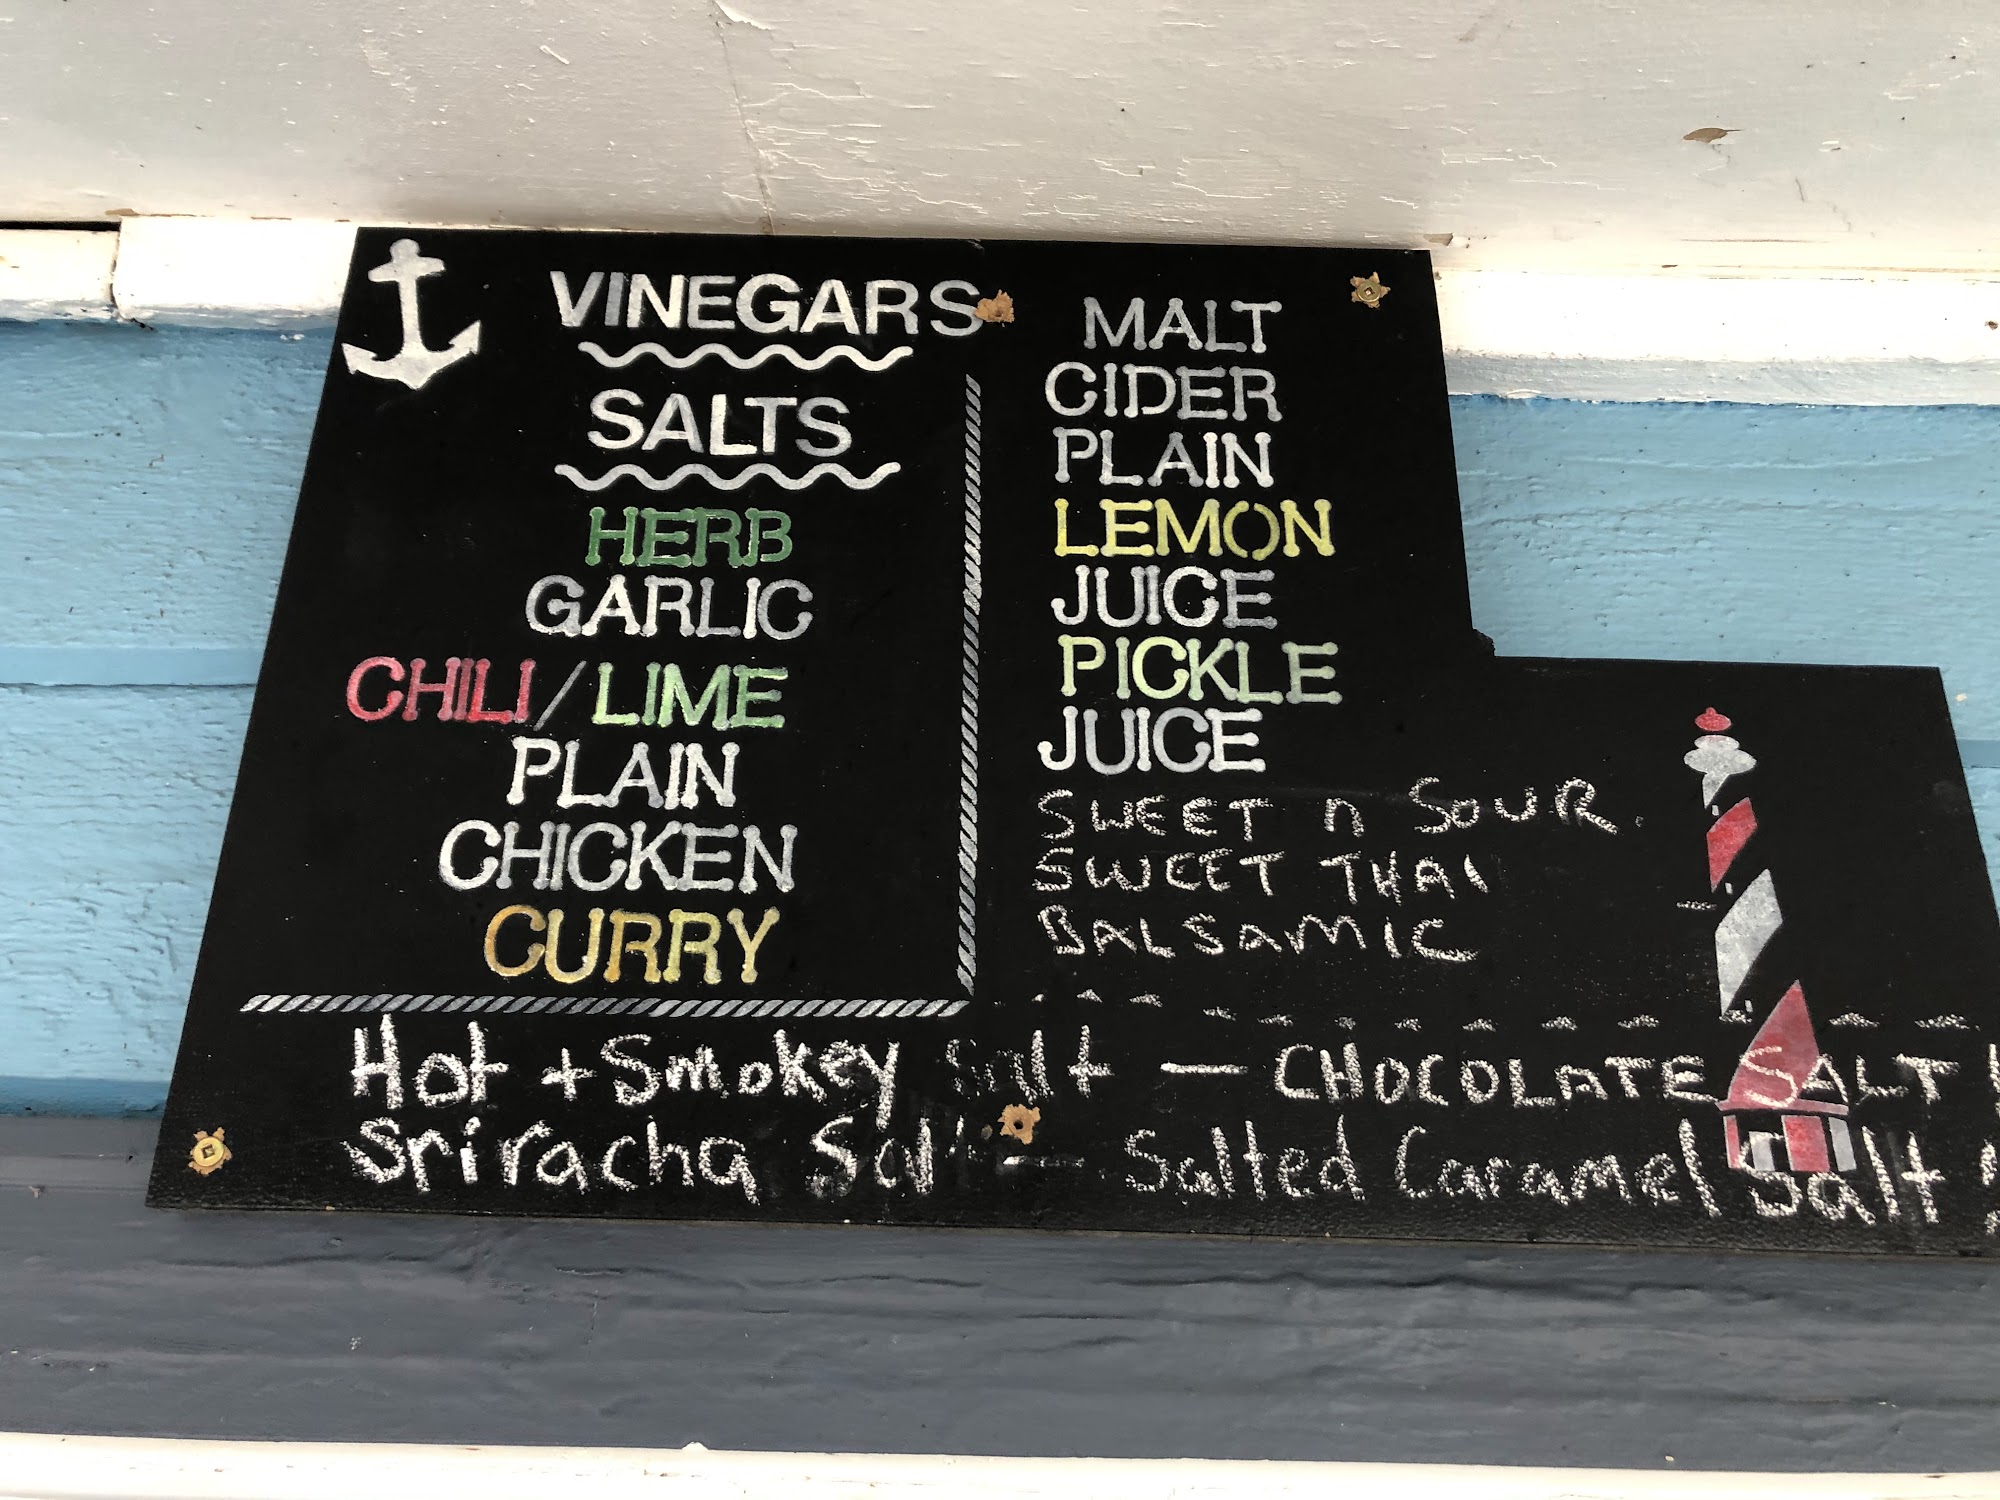 VINEGARS
SALTS
HERB
GARLIC
CHILI/LIME
PLAIN
CHICKEN
CURRY
MALT
CIDER
PLAIN
LEMON
JUICE
PICKLE
JUICE
SWEET n SOUR.
SWEET THAI
BALSAMIC
Hot + Smokey Salt — CHOCOLATE SALT
Sriracha Salt — Salted Caramel Salt